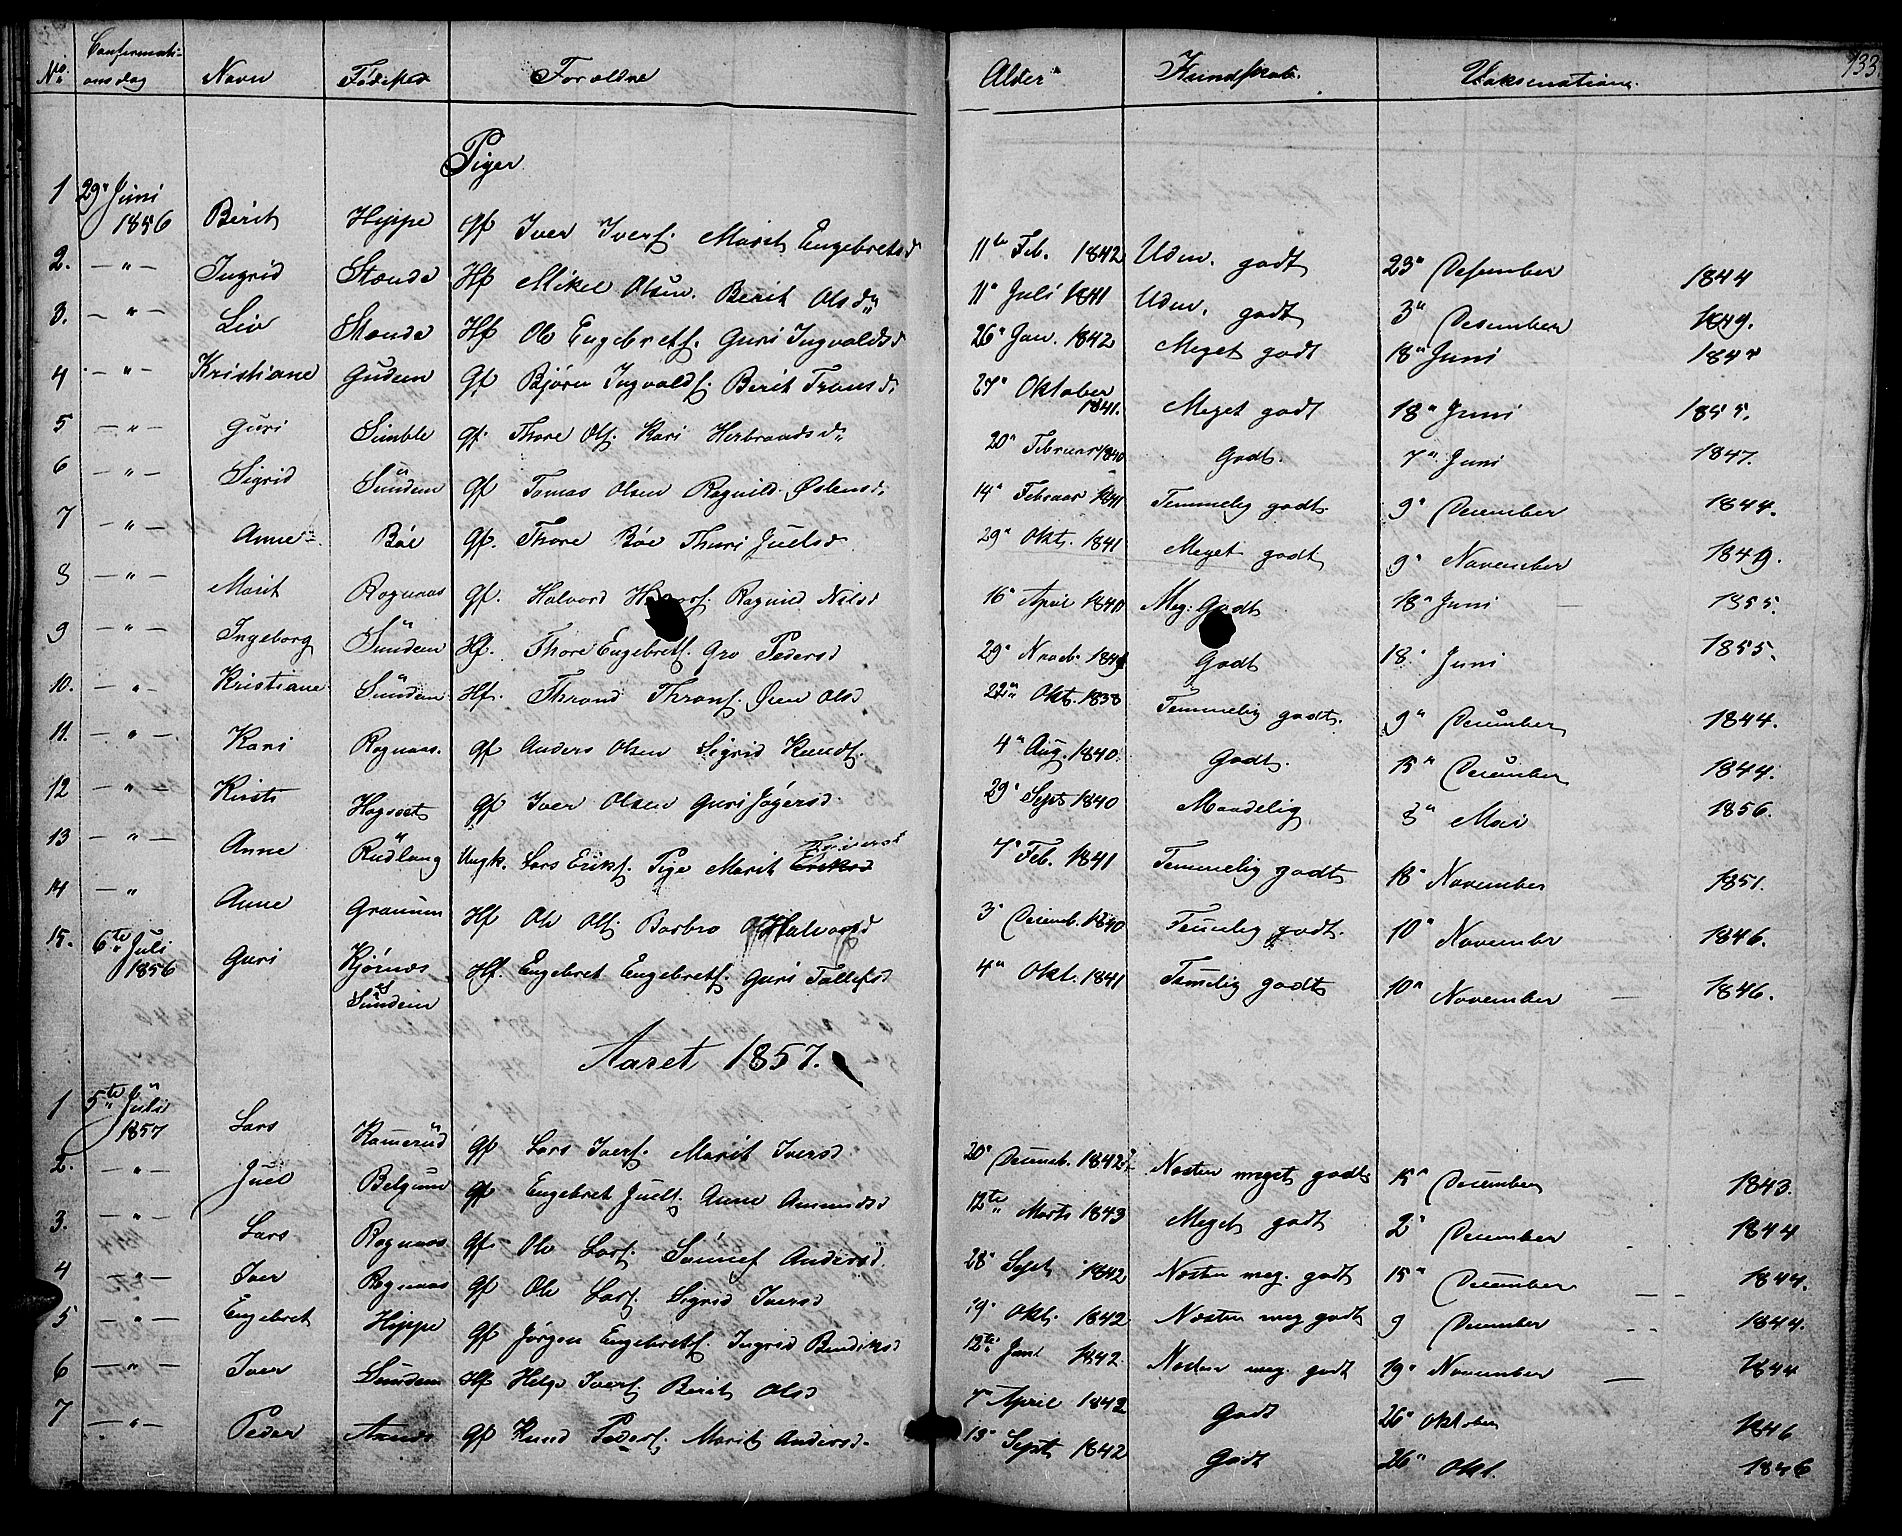 133
No. Confirmati-
onsdag Navn Fødested Forældre Alder Kundskab. Vaksination
Piger
1 29" Juni
1856 Berit Hippe Gf Iver Iversf. Marit Engebretsd 11te Feb. 1842 Udm. godt 23" Desember 1844
2. — " — Ingrid Stænde Hf Mikel Olsen. Berit Olsd" 11" Juli 1841 Udm. godt 3" Desember 1849.
3. — " — Liv Stænde Hf Ole Engebretf. Guri Ingvaldsd 26" Jan. 1842 Meget godt 18" Juni 1844
4 — " — Kristiane Gudem Gf Bjørn Ingvaldf. Berit Transd. 27" Oktober
1841. Meget godt 18" Juni 1855.
5 — " — Guri Simble Gf. Thore Olf. Kari Herbrandsd" 20" Februar 1840 Godt. 7" Juni 1847.
6 — " — Sigrid Sündem Gf Tomas Olsen Ragnild Østensd. 14" Februar 1841 Temmelig godt. 9" December 1844.
7 — " — Anne Bøe Gf. Thore Bøe Thuri Juelsd 29" Okt. 1841 Meget godt 9" November 1849.
8 — " — Marit Rognaas Gf. Halvord Ragnild Nilsd 16" April 1840 Meg. Godt 18" Juni — 1855.
9 — " — Ingeborg Sündem Hf. Thore Engebretf. Gro Pedersd 29" Novb. Godt 18" Juni 1855.
10. — " — Kristiane Sündem Hf. Thrond Thronf. Olsd 22" Okt. 1838 Temmelig godt. 9" December 1844.
11. — " — Kari Rognaas. Gf Anders Olsen Sigrid Knudf. 4" Aug. 1840. Godt. 15" December 1844.
12 — " — Kirsti Hagset Gf Iver Olsen Guri Jøgersd. 29" Sept 1840 Maadelig 3" Mai 1856.
13 — " — Anne Rüdlang Ungk. Lars Erikf. Pige Marit 7" Feb. 1841 Temmelig godt 18" November 1851.
14 — " Anne Granum Hf Ole Olf. Barbro Halvorsd 3" Decemb. 1840 Temelig godt. 10" November 1846.
15. 6te Juli
1856 Guri Kjørnæs
Sündem Hf. Engebret Engebretf. Guri Tollefsd 4" Okt. 1841 Temelig godt 10" November — 1846.
Aaret 1857.
1 5te Juli
1857 Lars Kamerüd Gf Lars Iverf. Marit Iversd 20" Decemb. 1842 Næsten meget godt 15" December 1843.
2. — " — Juel Belgum Gf Engebret Juelf. Anne Amundsd 12te Marts 1843 Meget godt 2" December 1844
3. — " — Lars Rognaas Gf. Ole Larf. Sünnef Andersd 28" Sept 1842 Næsten meg. godt 15" December 1844.
4 — " — Iver Rognaas Gf Ole Larf. Sigrid Iversd 19" Okt. 1842 Næsten meg godt 9 December 1844.
5 — " — Engebret Hippe Gf Jørgen Engebretf. Ingrid Bendiksd 12te Jan. 1842. Næsten meg. godt 19" November — 1844
6 — " — Iver Sundem Hf Helge Iverf Berit Olsd 7" April 1842 Godt 26" Oktober 1846
7 — " — Peder Gf Knud Pederf. Marit Andersd. 13" Sept 1842 Godt 26" Okt. 1846